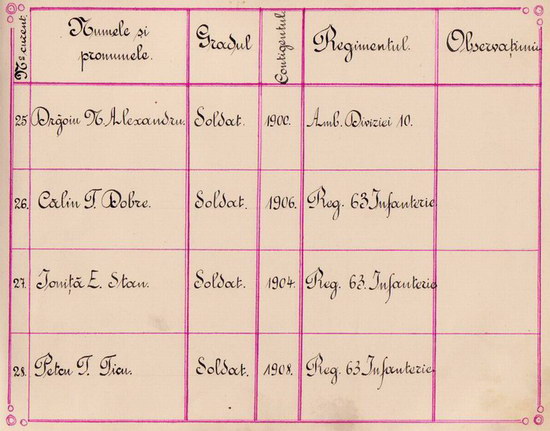 Nº curent.
Numele și
pronumele.
Gradul
Contigentul
Regimentul.
Observațiuni
25 Drăgoiu N. Alexandru. Soldat. 1900. Amb. Diviziei 10.
26. Călin T. Dobre. Soldat. 1906. Reg. 63 Infanterie
27. Ioniță E. Stan. Soldat. 1904. Reg. 63. Infanterie
28. Petcu T. Ticu. Soldat. 1908. Reg. 63 Infanterie